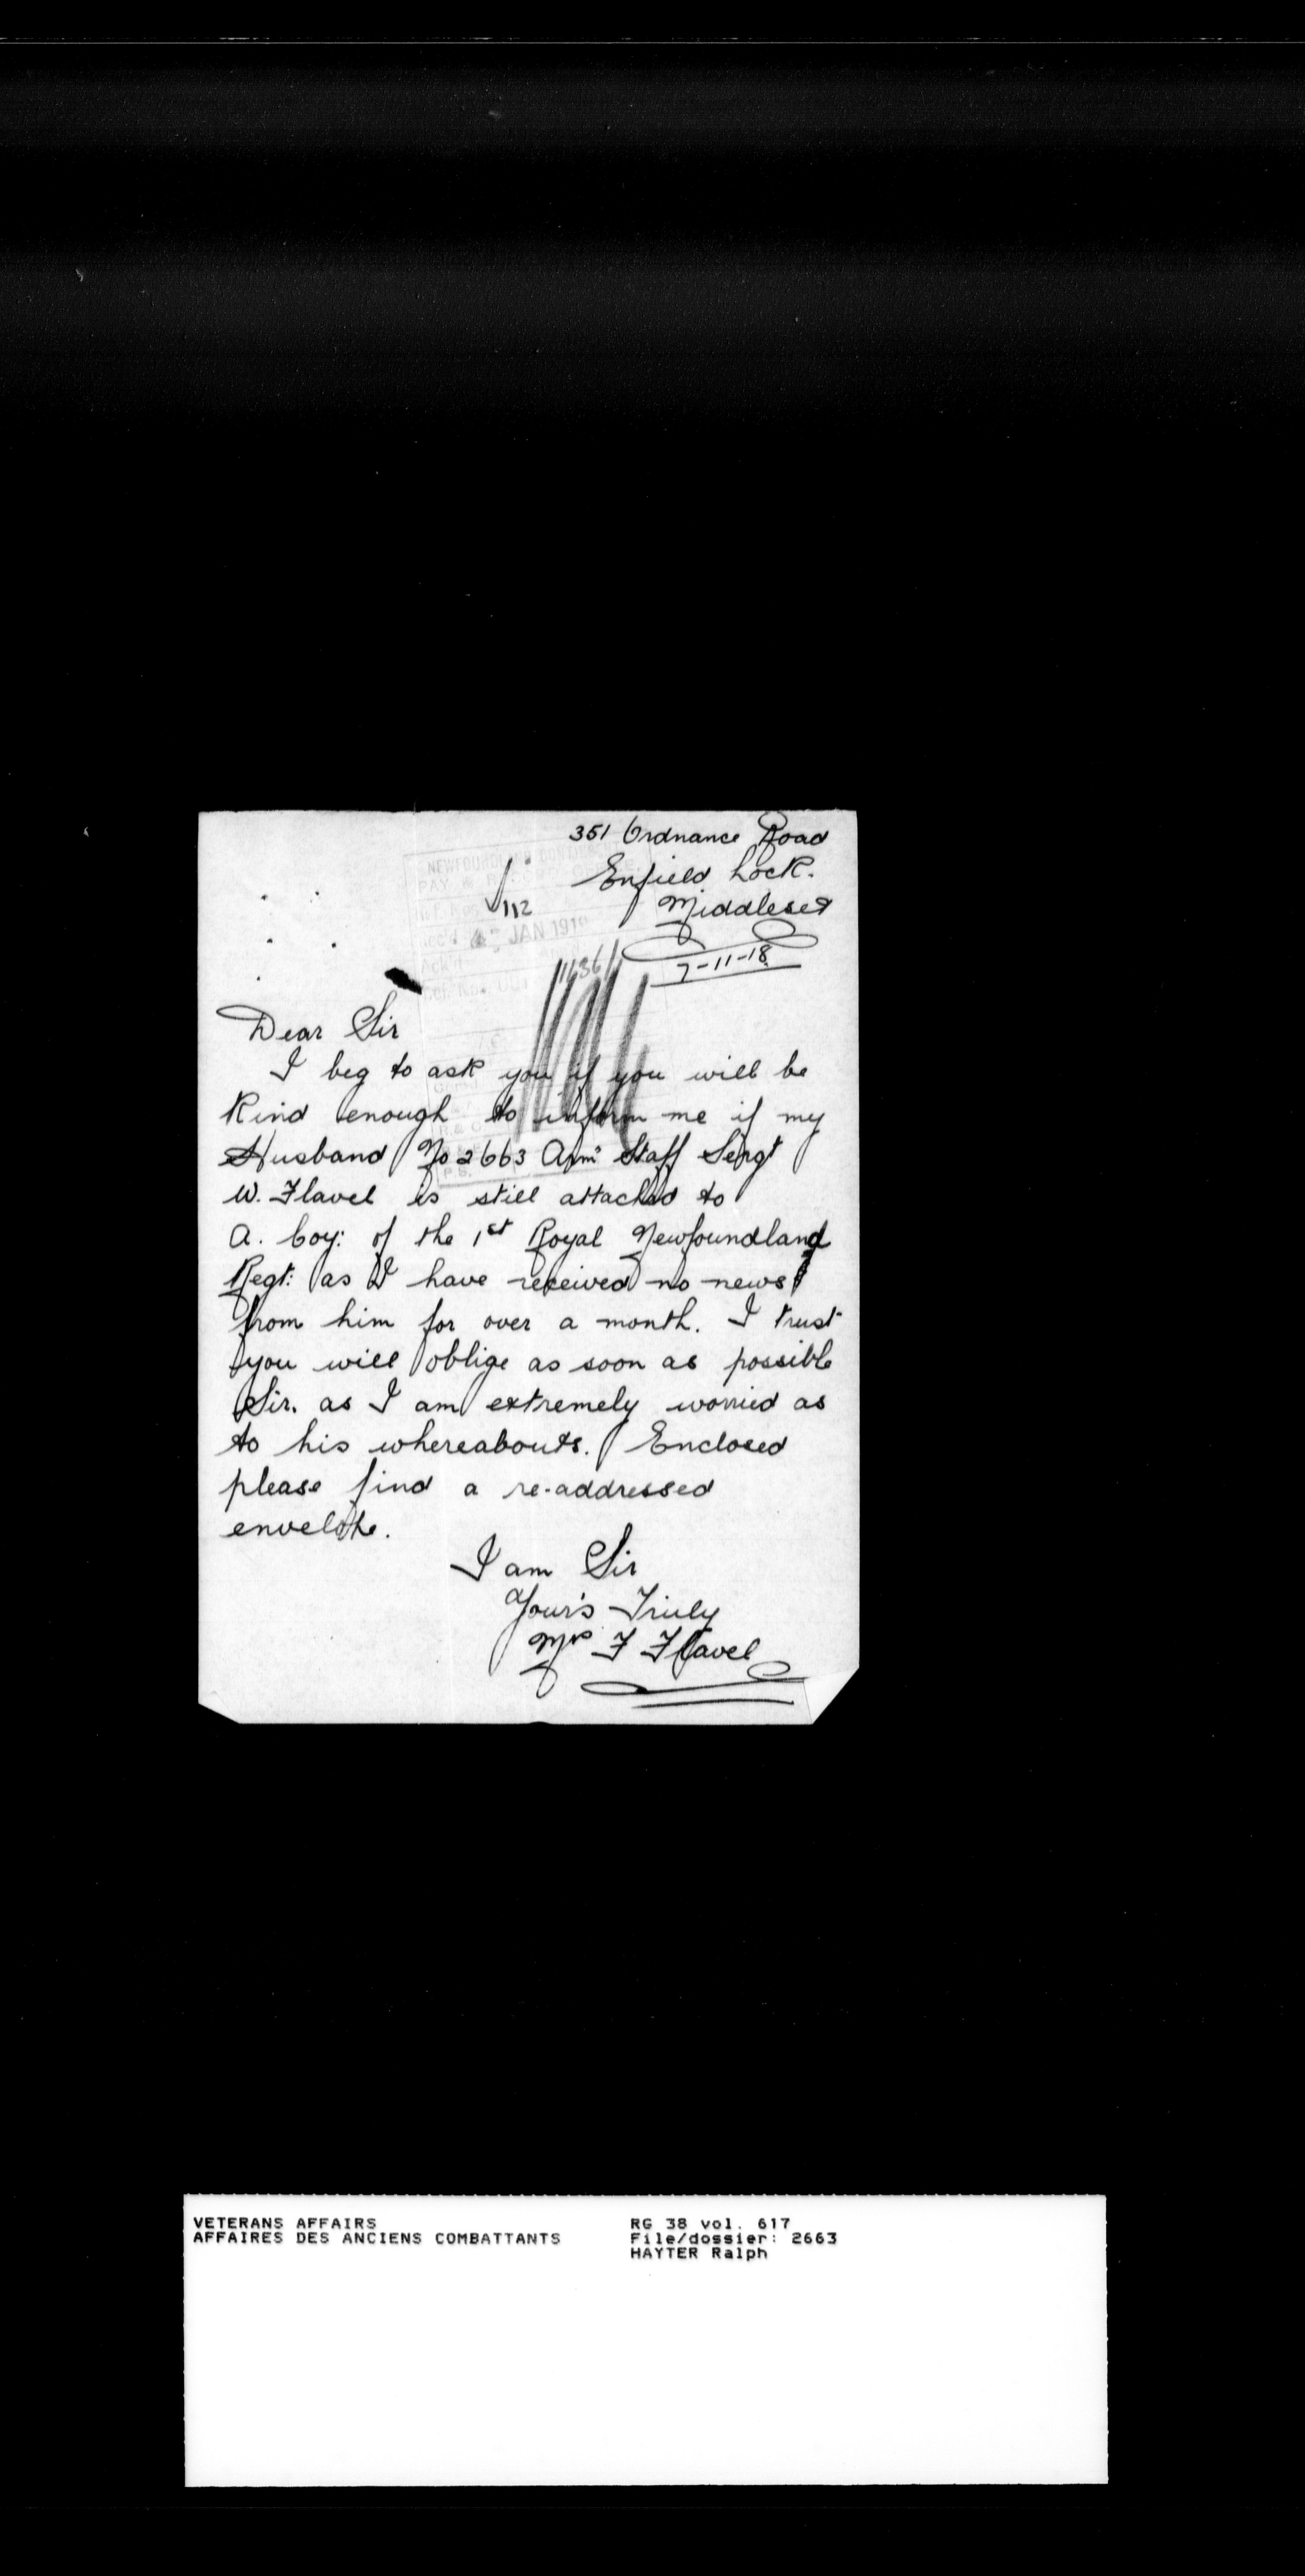 351 Ordnance Road
Enfield Lock.
Middlesex
7-11-18.
NEWFOUNDLAND CONTINGENT
PAY & RECORD OFFICE
112
Rec'd JAN 1919
Ack'd
Dear Sir
I beg to ask you if you will be
Kind enough to inform me if my
Husband No 2663 Arm: Staff Sergt
W. Flavel is still attached to
A. Coy: of the 1st Royal Newfoundland
Regt: as I have received no news
from him for over a month. I trust
you will oblige as soon as possible
Sir. as I am extremely worried as
to his whereabouts. Enclosed
please find a re-addressed
envelope.
I am Sir
Your's Truly
Mrs F Flavel
VETERANS AFFAIRS
AFFAIRES DES ANCIENS COMBATTANTS
RG 38 vol. 617
File/dossier: 2663
HAYTER Ralph